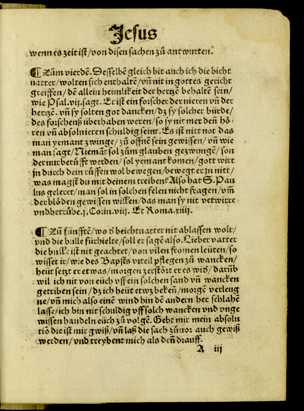 Jesus
wenn es zeit ist/von disen sachen zů antwurten.
¶ Zům vierdē. Desselbē gleich bit auch ich die bicht
vätter/wolten sich enthaltē/vn̄ nit in gottes gericht
greiffen/dē allein heimlikeit der hertzē behaltē sein/
wie Psal.vij.sagt. Er ist ein forscher der nieren vn̄ der
hertzē. vn̄ sy solten got dancken/dz sy solcher bürde/
des forschens überhaben weren/so sy nit mer den̄ hö-
ren vn̄ absoluieren schuldig seint. Es ist nitt not das
man yemant zwinge/zů öffnē sein gewissen/vn̄ wie
man sagt/Niemāt sol zům glauben gezwungē/son
der nür berůfft werden/sol yemant komen/gott wirt
in durch dein rüffen wol bewegen/bewegt er in nitt/
was machst du mit deinem treiben? Also hat S. Pau
lus geleret/man sol in solchen felen nicht fragen/vm̄
der blöden gewissen willen/das man sy nit verwirre
vnd betrübe.j.Corin.viij. Er Roma.xiiij.
¶ Zů fünfftē/wo ÿ beichtuatter nit ablassen wolt/
vnd die bullē fürhielte/soll er sagē also. Lieber vatter
die bullē ist nit geachtet/von vilen fromen leüten/so
wisset ir/wie des Bapsts vrteil pflegen zů wancken/
heüt setzt er et was/morgen zerstört er es wid̄/darūb
wil ich nit von eüch vff ein solchen sand vn̄ wancken
getriben sein/dz ich heüt erwzbekēn/morgē verleug
ne/vn̄ mich also einē wind hin dē andern her schlahē
lasse/ich bin nit schuldig vff solch wancken vnd vnge
wissen handeln eüch zů volgē. Gebt mir mein absolu
tiō die ist mir gwiß/vn̄ laß die sach zůuor auch gewiß
werden/vnd treybent mich als den̄ drauff.
A iij